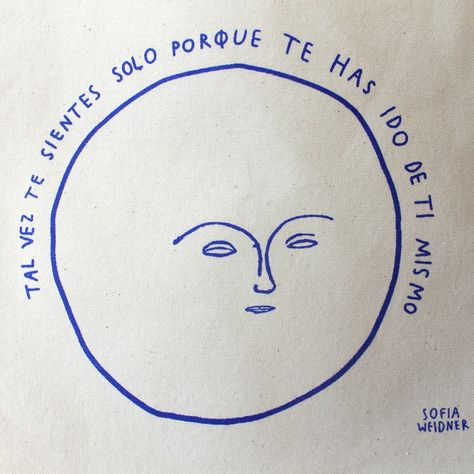 TAL VEZ TE SIENTES SOLO PORQUE TE HAS IDO DE TI MISMO
SOFIA
WEIDNER